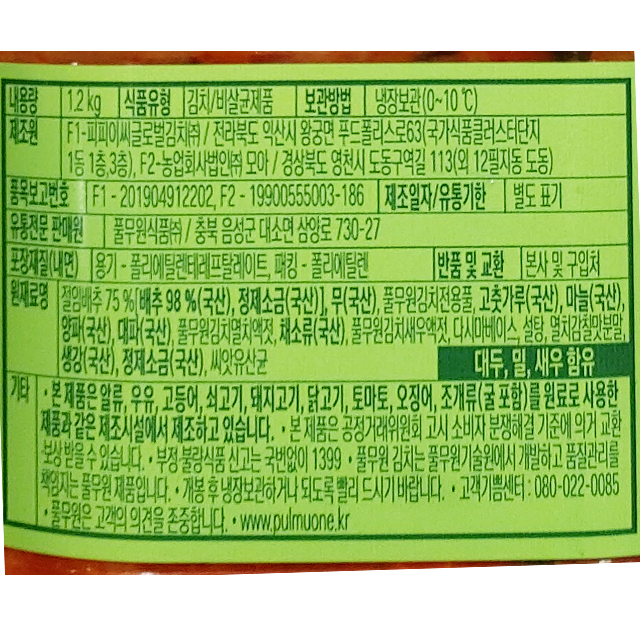 내용량 1.2 kg 식품유형 김치/비살균제품 보관방법 냉장보관(0~10 ℃)
제조원 F1-피피이씨글로벌김치㈜ / 전라북도 익산시 왕궁면 푸드폴리스로63(국가식품클러스터단지
1동 1층,3층), F2-농업회사법인㈜ 모아 / 경상북도 영천시 도동구역길 113(외 12필지동 도동)
품목보고번호 F1 - 201904912202, F2 - 19900555003-186 제조일자/유통기한 별도 표기
유통전문 판매원 풀무원식품㈜ / 충북 음성군 대소면 삼양로 730-27
포장재질(내면) 용기 - 폴리에틸렌테레프탈레이트, 패킹 - 폴리에틸렌 반품 및 교환 본사 및 구입처
원재료명 절임배추 75 %[배추 98 %(국산), 정제소금(국산)], 무(국산), 풀무원김치전용풀, 고춧가루(국산), 마늘(국산),
양파(국산), 대파(국산), 풀무원김치멸치액젓, 채소류(국산), 풀무원김치새우액젓, 다시마베이스, 설탕, 멸치감칠맛분말,
생강(국산), 정제소금(국산), 씨앗유산균 대두, 밀, 새우 함유
기타 • 본 제품은 알류, 우유, 고등어, 쇠고기, 돼지고기, 닭고기, 토마토, 오징어, 조개류(굴 포함)를 원료로 사용한
제품과 같은 제조시설에서 제조하고 있습니다. • 본 제품은 공정거래위원회 고시 소비자 분쟁해결 기준에 의거 교환
보상 받을 수 있습니다. • 부정 불량식품 신고는 국번없이 1399 • 풀무원 김치는 풀무원기술원에서 개발하고 품질관리를
책임지는 풀무원 제품입니다. • 개봉 후 냉장보관하거나 되도록 빨리 드시기 바랍니다. • 고객기쁨센터 : 080-022-0085
• 풀무원은 고객의 의견을 존중합니다. • www.pulmuone.kr